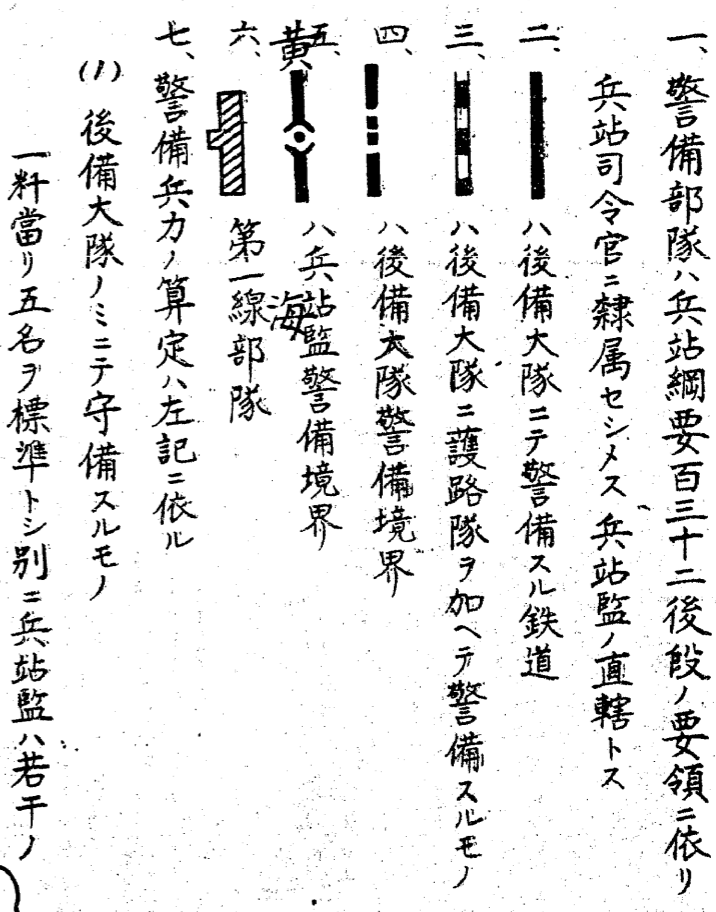 一、警備部隊ハ兵站綱要百三十二後段ノ要領ニ依リ
兵站司令官ニ隷属セシメス兵站監ノ直轄トス
二、ハ後備大隊ニテ警備スル鉄道
三、ハ後備大隊ニ護路隊ヲ加ヘテ警備スルモノ
四、ハ後備大隊警備境界
五、ハ兵站監警備境界
黄
海
六、第一線部隊
七、警備兵力ノ算定ハ左記ニ依ル
(1)後備大隊ノミニテ守備スルモノ
一粁當リ五名ヲ標準トシ別ニ兵站監ハ若干ノ